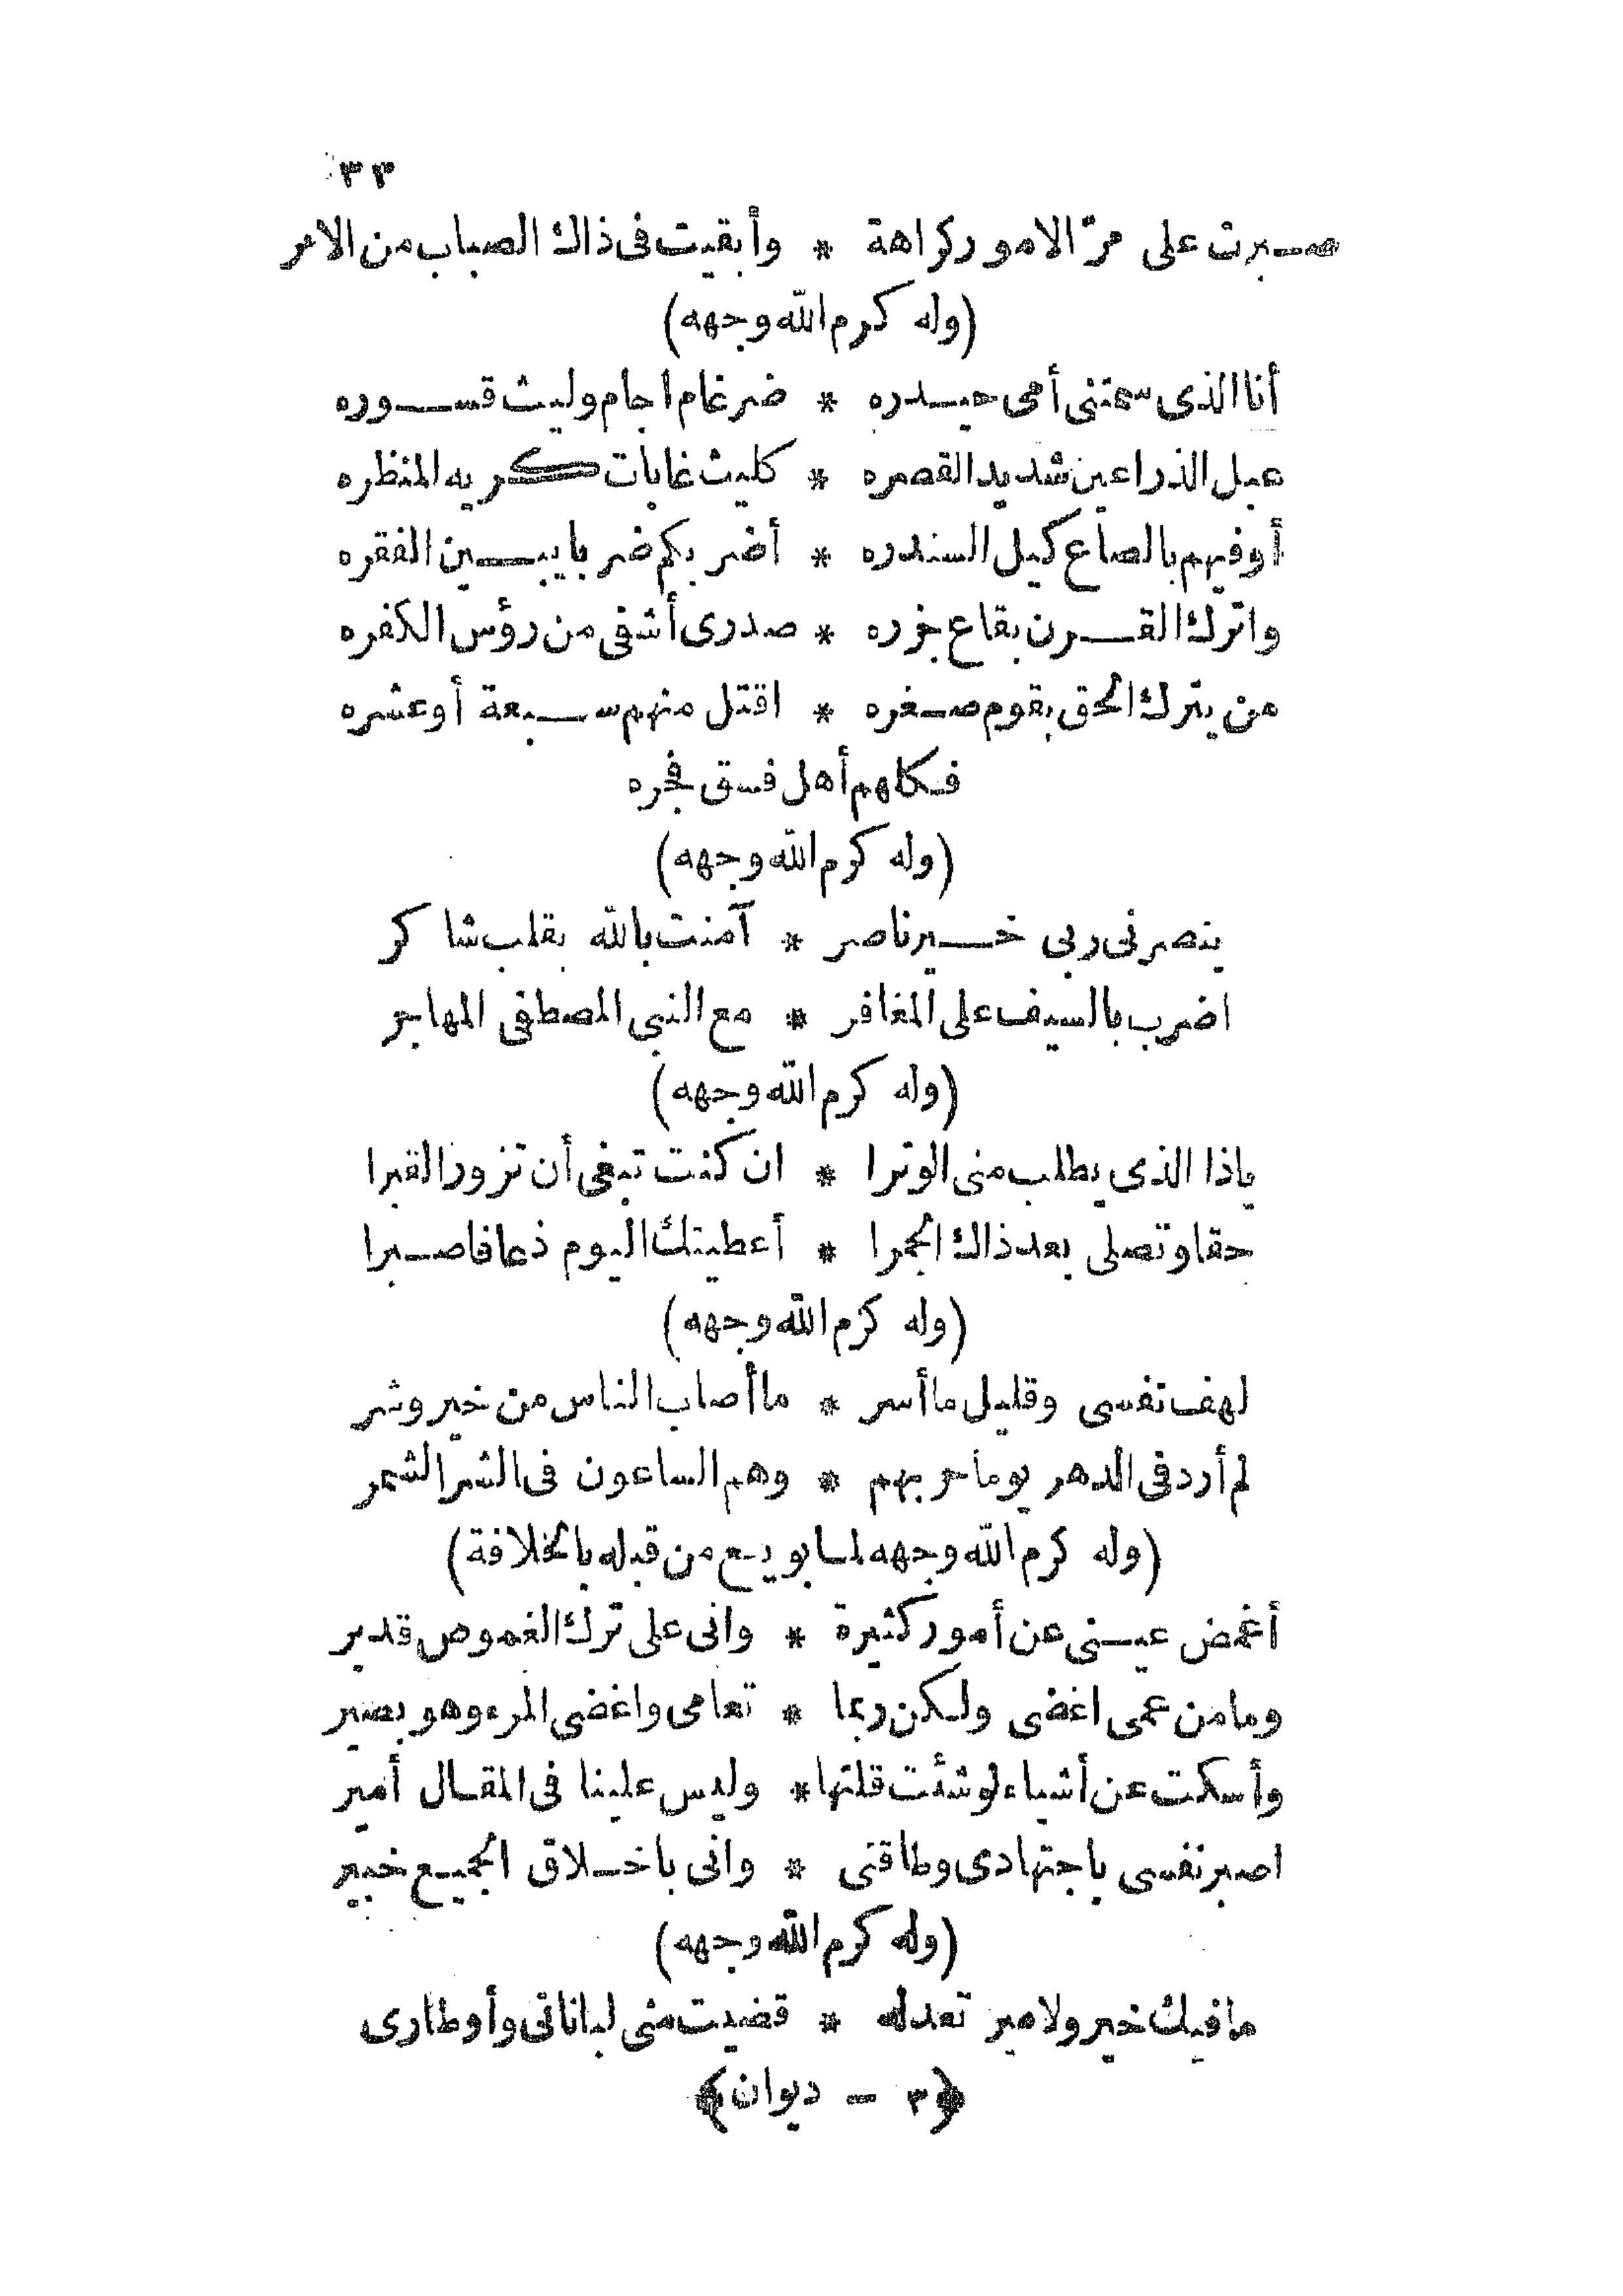 ٣٣
صبرت على مرّ الامور كراهة * وأبقيت فى ذاك الصباب من الامر
(وله كرم الله وجهه)
أنا الذى سمتنى أمى حيدره * ضرغام اجام وليث قسوره
عبل الذراعين شديد القصره * كليث غابات كريه المنظره
أوفيهم بالصاع كيل السندره * أضربكم ضربا يبين الفقره
واترك القرن بقاع جزره * صدرى أشفى من رؤس الكفره
من يترك الحق يقوم صغره * اقتل منهم سبعة أو عشره
فكلهم أهل فسق فجره
(وله كرم الله وجهه)
ينصرنى ربى خير ناصر * آمنت بالله بقلب شاكر
اضرب بالسيف على المغافر * مع النبى المصطفى المهاجر
(وله كرم الله وجهه)
ياذا الذى يطلب منى الوترا * ان كنت تبغى أن تزور القبرا
حقا وتصلى بعد ذاك الجمرا * أعطيتك اليوم ذعافا صبرا
(وله كرم الله وجهه)
لهف نفسى وقليل ما أسر * ما أصاب الناس من خير وشر
لم أرد فى الدهر يوما حربهم * وهم الساعون فى الشر الشمر
(وله كرم الله وجهه لما بويع من قبله بالخلافة)
أغمض عينى عن أمور كثيرة * وانى على ترك الغموض قدير
وما من عمى اغضى ولكن ربما * تعامى واغضى المرء وهو بصير
وأسكت عن أشياء لو شئت قلتها * وليس علينا فى المقال أمير
اصبر نفسى باجتهادى وطاقتى * وانى باخلاق الجميع خبير
(وله كرم الله وجهه)
ما فيك خير ولا مير تعدله * قضيت منى لباناتى وأوطارى
﴿٣ - ديوان﴾